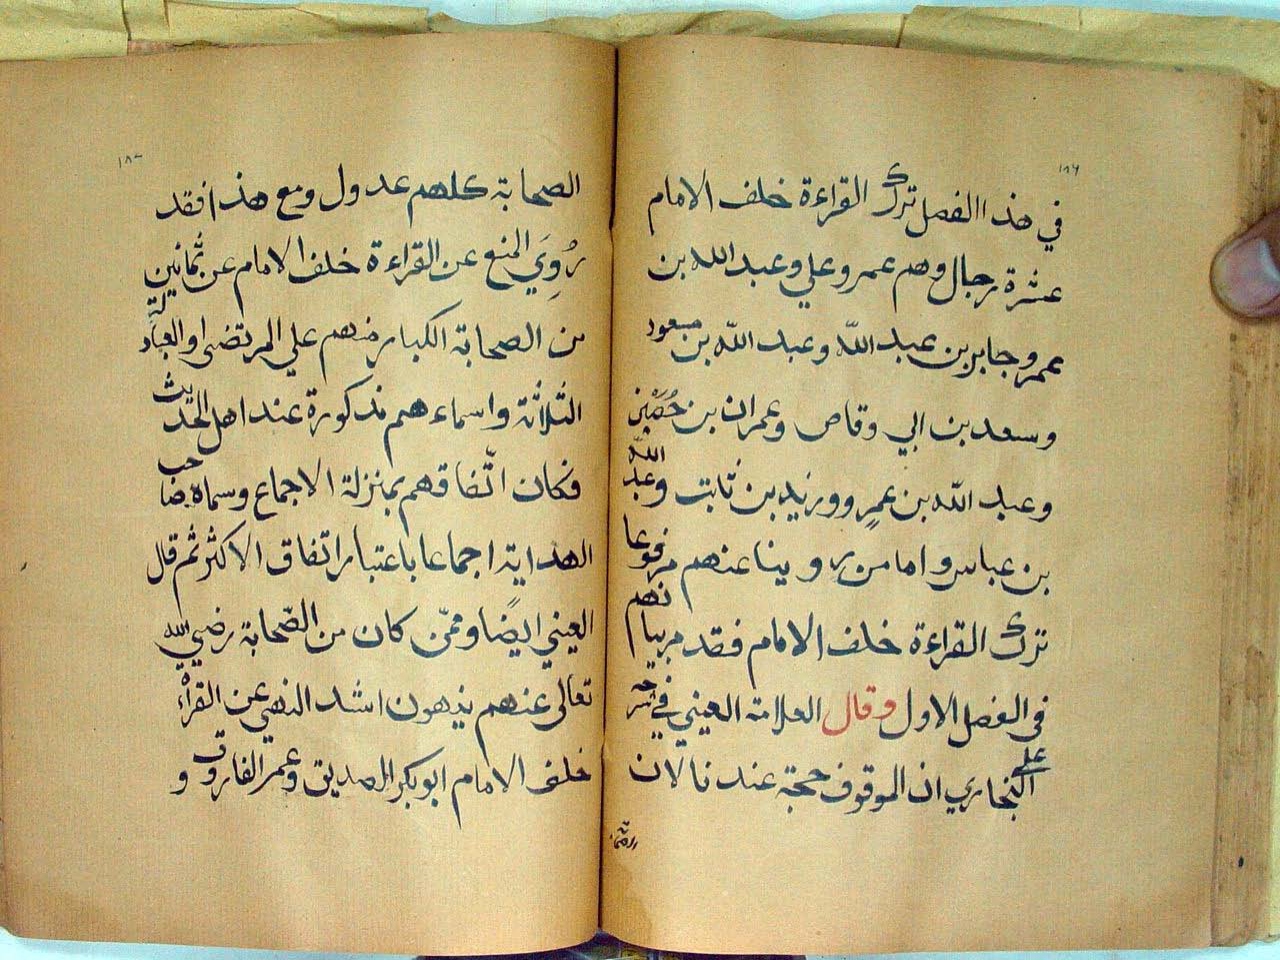 ١٨٦
في هذا الفصل ترك القراءة خلف الامام
عشرة رجال وهم عمر وعلي وعبد الله بن
عمر وجابر بن عبد الله وعبد الله بن مسعود
وسعد بن ابي وقاص وعمران بن حُصَيْنٍ
وعبد الله بن عمرٍو وزيد بن ثابت وعبد الله
بن عباس واما من روينا عنهم مرفوعا
ترك القراءة خلف الامام فقد مر بيانهم
في الفصل الاول وقال العلامة العيني في شرحه
على البخاري ان الموقوف حجة عندنا لان
الصحابة
١٨٧
الصحابة كلهم عدول ومع هذا فقد
رُوِيَ المنع عن القراءة خلف الامام عن ثمانين
من الصحابة الكبار منهم علي المرتضى والعبادلة
الثلاثة واسماءهم مذكورة عند اهل الحديث
فكان اتّفاقهم بمنزلة الاجماع وسماه صاحب
الهداية اجماعا باعتبار اتفاق الاكثر ثم قال
العيني ايضًا وممّن كان من الصّحابة رضي الله
تعالى عنهم ينهون اشد النهي عن القراءة
خلف الامام ابو بكر الصديق وعمر الفاروق و